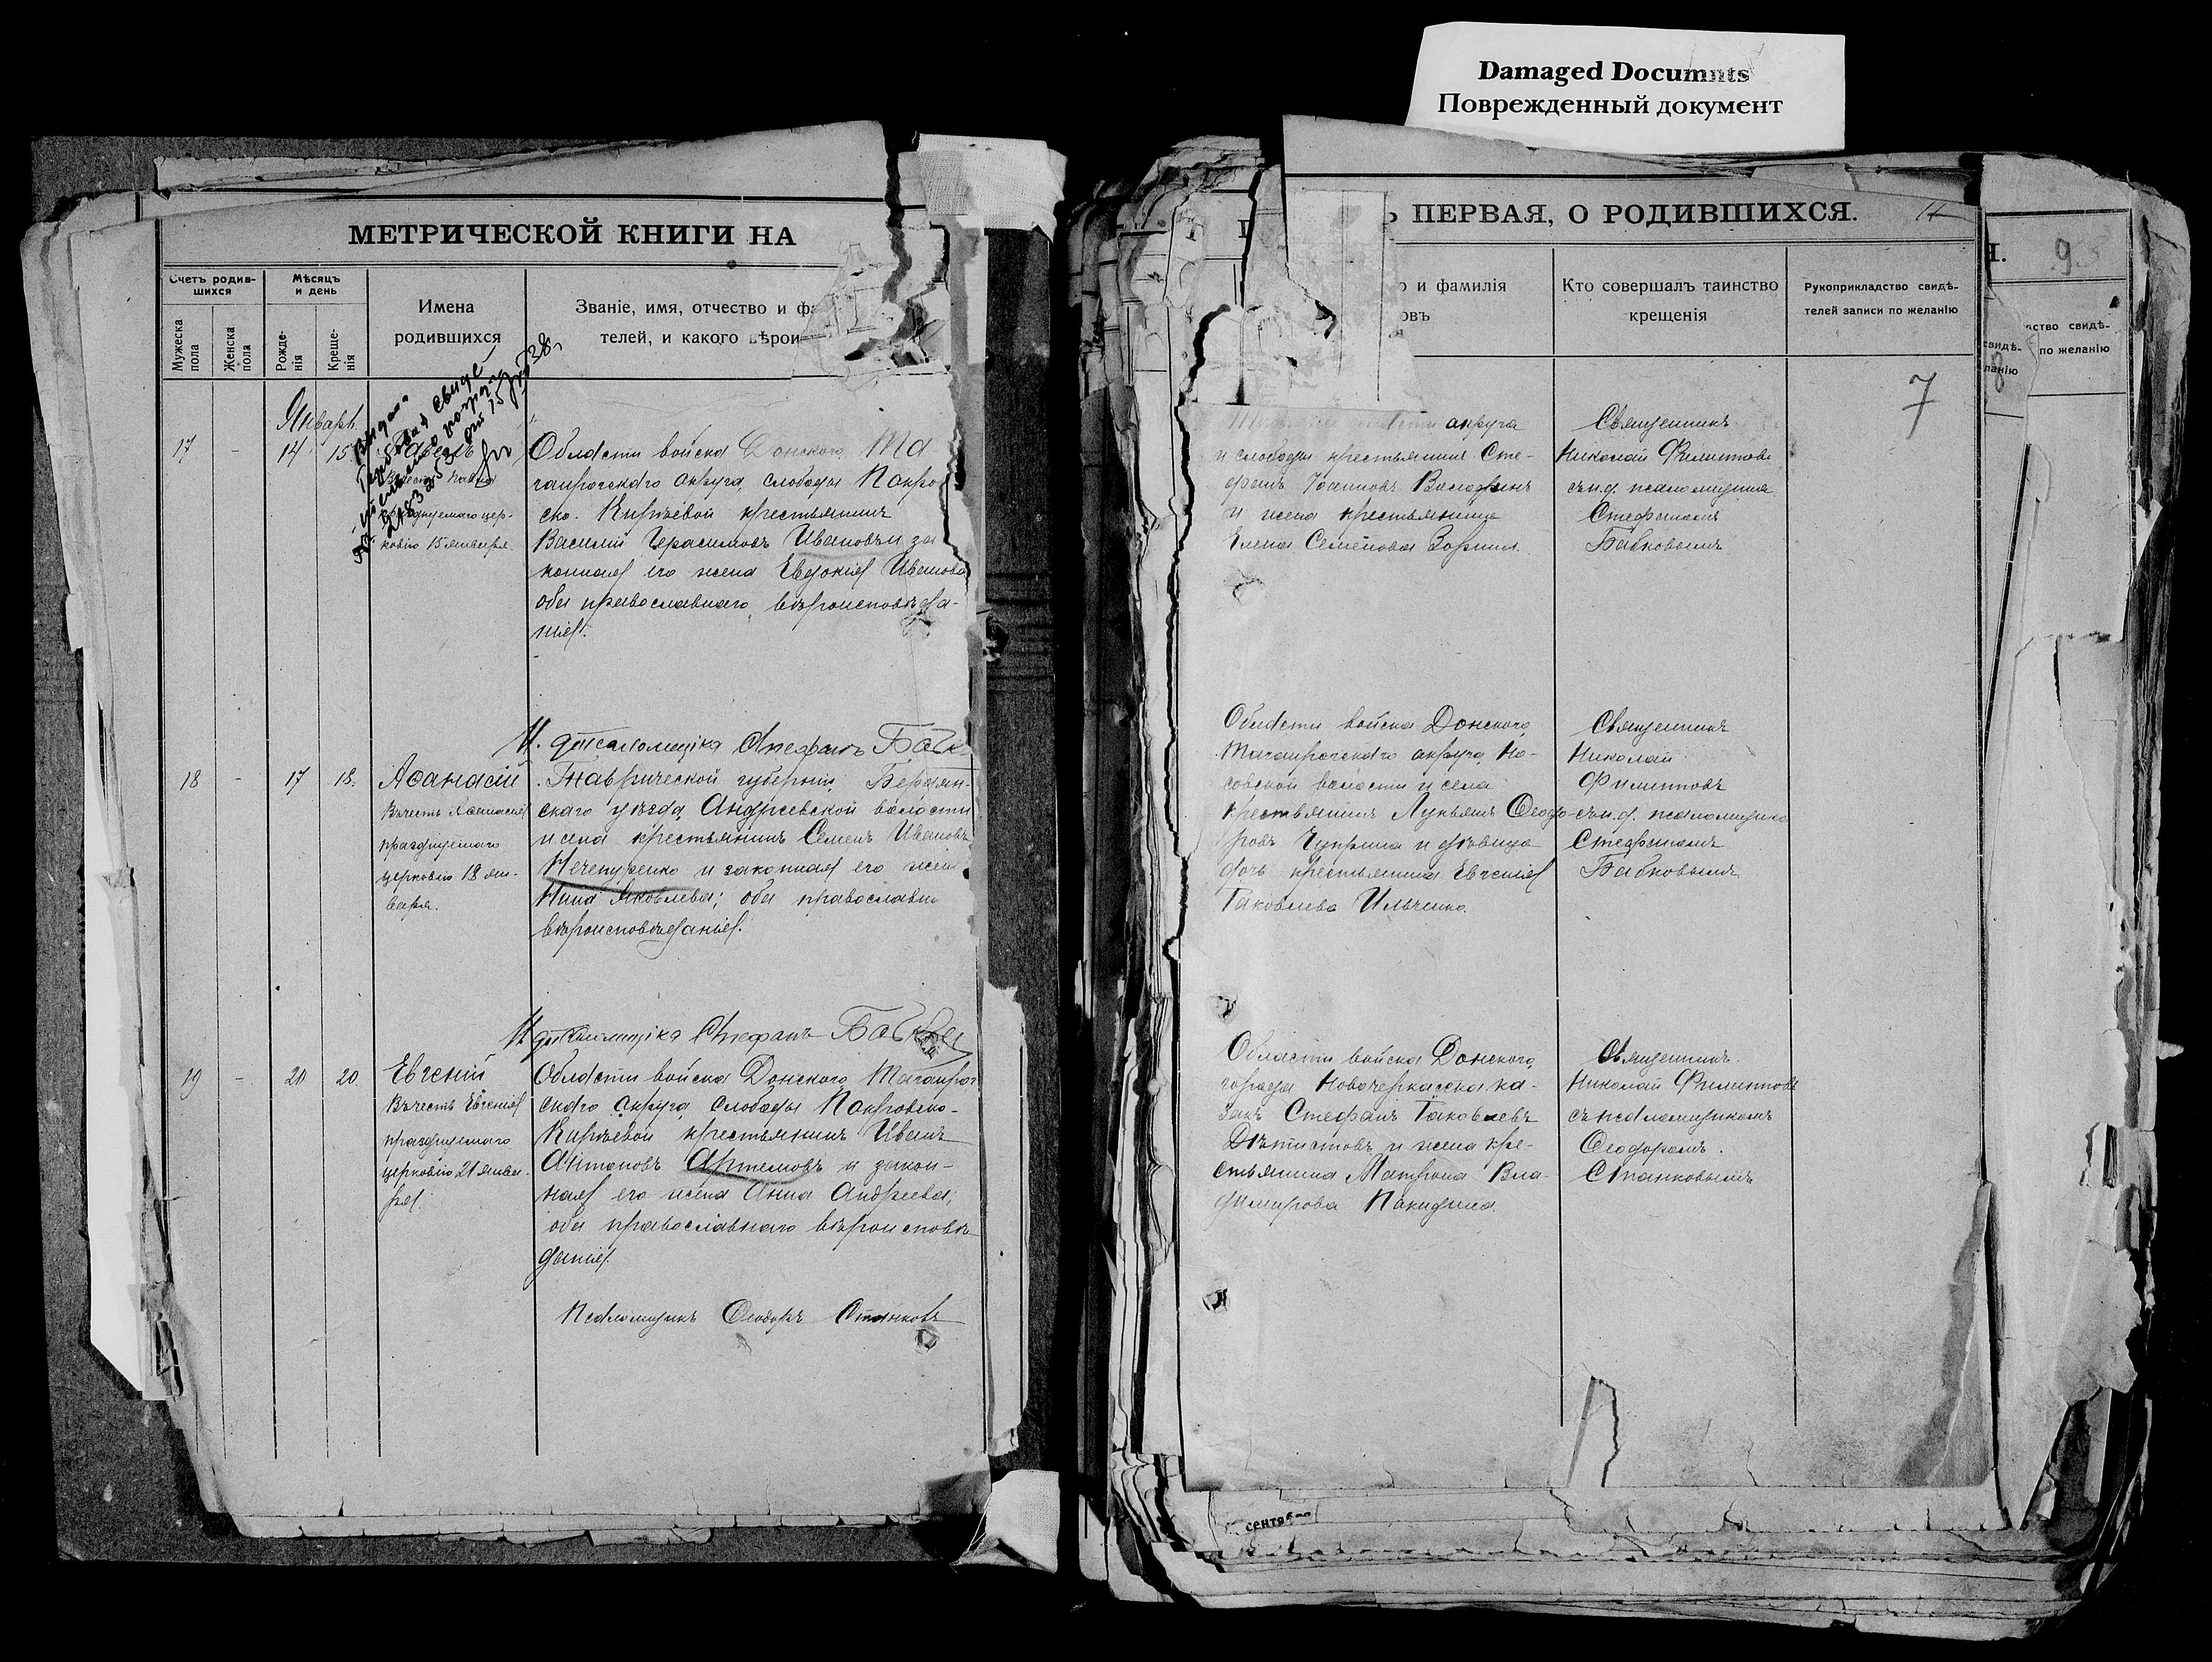 Damaged Documents
Поврежденный документ
МЕТРИЧЕСКОЙ КНИГИ НА
Счетъ родив-
шихся
Мѣсяцъ
и день
Мужеска
пола
Женска
пола
Рожде-
нія
Креще-
нія
Имена
родившихся
Званіе, имя, отчество и фа
телей, и какого вѣрои
Январь
17 - 14 15
Павелъ
праздничнаго цер-
ковію 15 января.
Области войска Донского, Та-
ганрогскаго округа, слободы Покро
ско-Кирѣевой крестьянинъ
Василій Герасимовъ Ивановъ и за
конная его жена Евдокія Иванова
оба православнаго вѣроисповѣда-
нія.
И. д. псаломщика Стефанъ Бабк
18 - 17 18.
Аѳанасій
Въ честь Аѳанасія
празднуемаго
церковію 18 ян-
варя.
Таврической губерніи, Бердян-
скаго уѣзда, Андреевской волости
и села крестьянинъ Семенъ Ивановъ
Нечепуренко и законная его жена
Нина Яковлева; оба православн
вѣроисповѣданія.
И. д. псаломщика Стефанъ Бабков
19 - 20 20
Евгеній
Въ честь Евгенія
празднуемаго
церковію 21 янва-
ря.
Области войска Донского, Таганрог
скаго округа слободы Покровско-
Кирѣевой крестьянинъ Иванъ
Антоновъ Артемовъ и закон-
ная его жена Анна Андреева;
оба православнаго вѣроисповѣ-
данія.
Псаломщикъ Ѳеодоръ Станковъ
Ь ПЕРВАЯ, О РОДИВШИХСЯ.
о и фамилія
овъ
Кто совершалъ таинство
крещенія
Рукоприкладство свидѣ-
телей записи по желанію
7
округа
и слободы крестьянинъ Сте-
фанъ Іоанновъ
и жена крестьянина
Елена Семенова Зорина.
Священникъ
Николай Филиповъ
съ и. д. псаломщика
Стефаномъ
Бабковымъ
Области войска Донского,
Таганрогскаго округа, Но-
совской волости и села
крестьянинъ Лукьянъ Ѳеодо-
ровъ Чуприна и дѣвица
дочь крестьянина Евгенія
Іаковлева Ильченко.
Священникъ
Николай
Филиповъ
съ и. д. псаломщика
Стефаномъ
Бабковымъ
Области войска Донского,
города Новочеркасска ка-
закъ Стефанъ Іаковлевъ
и жена кре-
стьянина Матрона Вла-
димирова
Священникъ
Николай Филиповъ
съ псаломщикомъ
Ѳеодоромъ
Станковымъ
9
ство свидѣ-
по желанію
свидѣ-
ланію
сентяб